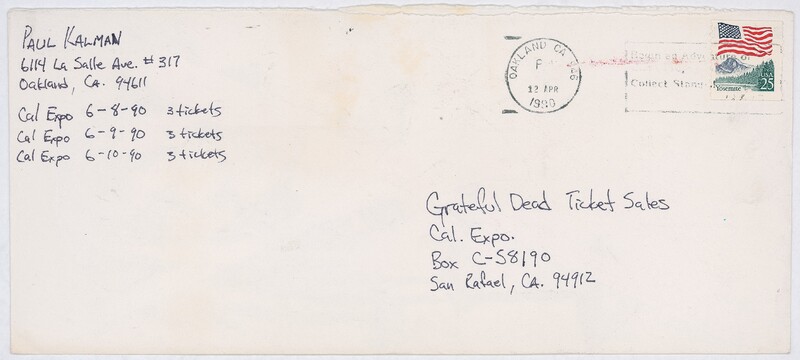 PAUL KALMAN
6114 La Salle Ave. #317
Oakland, CA. 94611
Cal Expo 6-8-90 3 tickets
Cal Expo 6-9-90 3 tickets
Cal Expo 6-10-90 3 tickets
OAKLAND CA 946
P
12 APR
1990
Collect Stamps
USA
25
Yosemite
Grateful Dead Ticket Sales
Cal. Expo.
Box C-S8190
San Rafael, CA. 94912